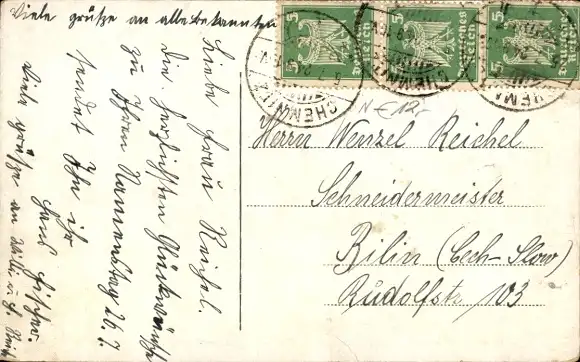 Viele grüße an alle bekannten
Liebe Frau Reichel.
Die herzlichsten Glückwünsche
zu Ihren Namenstag 26.7.
sendet Ihnen ihr
Hans
Viele grüße an
5
Deutsches Reich
5
Deutsches Reich
5
Deutsches Reich
CHEMNITZ
CHEMNITZ
CHEMNITZ
N € 12,-
Herrn Wenzel Reichel
Schneidermeister
Bilin (Cech-Slow)
Rudolfstr 103